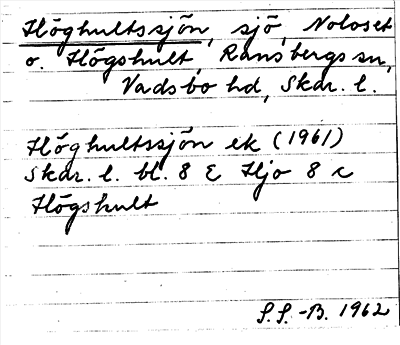 Höghultssjön, sjö, Noloset
o. Högshult, Ransbergs sn,
Vadsbo hd, Skar. l.
Höghultssjön ek (1961)
Skar. l. bl. 8 E Hjo 8 c
Högshult
S.S.-B. 1962